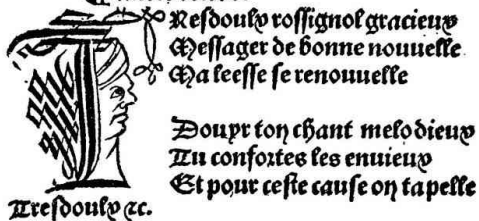 Tresdoulx rossignol gracieux
Messager de bonne nouuelle
Ma leesse se renouuelle
Douyr ton chant melodieux
Tu confortes les enuieux
Et pour ceste cause on tapelle
Tresdoulx ⁊c.